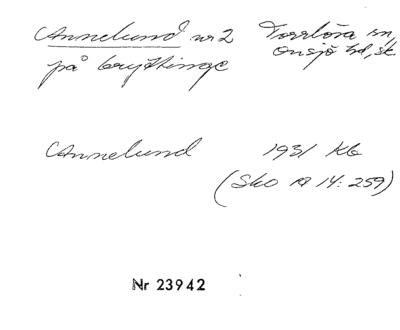 Annelund nr 2 Torrlösa sn,
på Gryttinge Onsjö hd, Sk.
Annelund 1931 Kb
(Sko A 14: 259)
Nr 23942